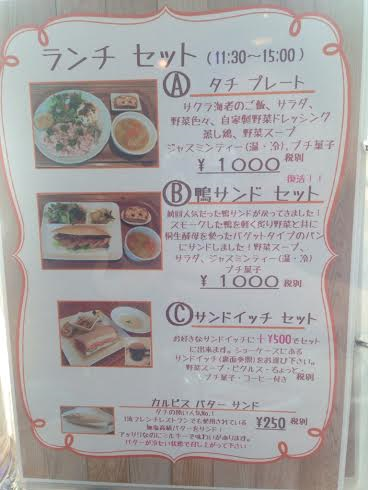 ランチ セット (11:30～15:00)
Ⓐ タチ プレート
サクラ海老のご飯、サラダ、
野菜色々、自家製野菜ドレッシング
蒸し鶏、野菜スープ
ジャスミンティー(温・冷)、プチ菓子
¥1000 税別
復活!!
Ⓑ 鴨サンド セット
前回人気だった鴨サンドが戻ってきました!
スモークした鴨を軽く炙り野菜と共に
桐生酵母を使ったバゲットタイプのパン
にサンドしました!野菜スープ、
サラダ、ジャスミンティー(温・冷)
プチ菓子
¥1000 税別
Ⓒ サンドイッチ セット
お好きなサンドイッチに+¥500でセット
に出来ます。ショーケースにある
サンドイッチ(裏面参照)をお選び下さい。
野菜スープ・ピクルス・ちょっと
プチ菓子・コーヒー付き 税別
カルピス バター サンド
タチの隠い人気No.1
1流フレンチレストランでも使用されている
無塩高級バターをサンド!
アッサリなのにミルキーで味わいがあります。
バターが冷たい状態で召し上がって下さい
¥250 税別